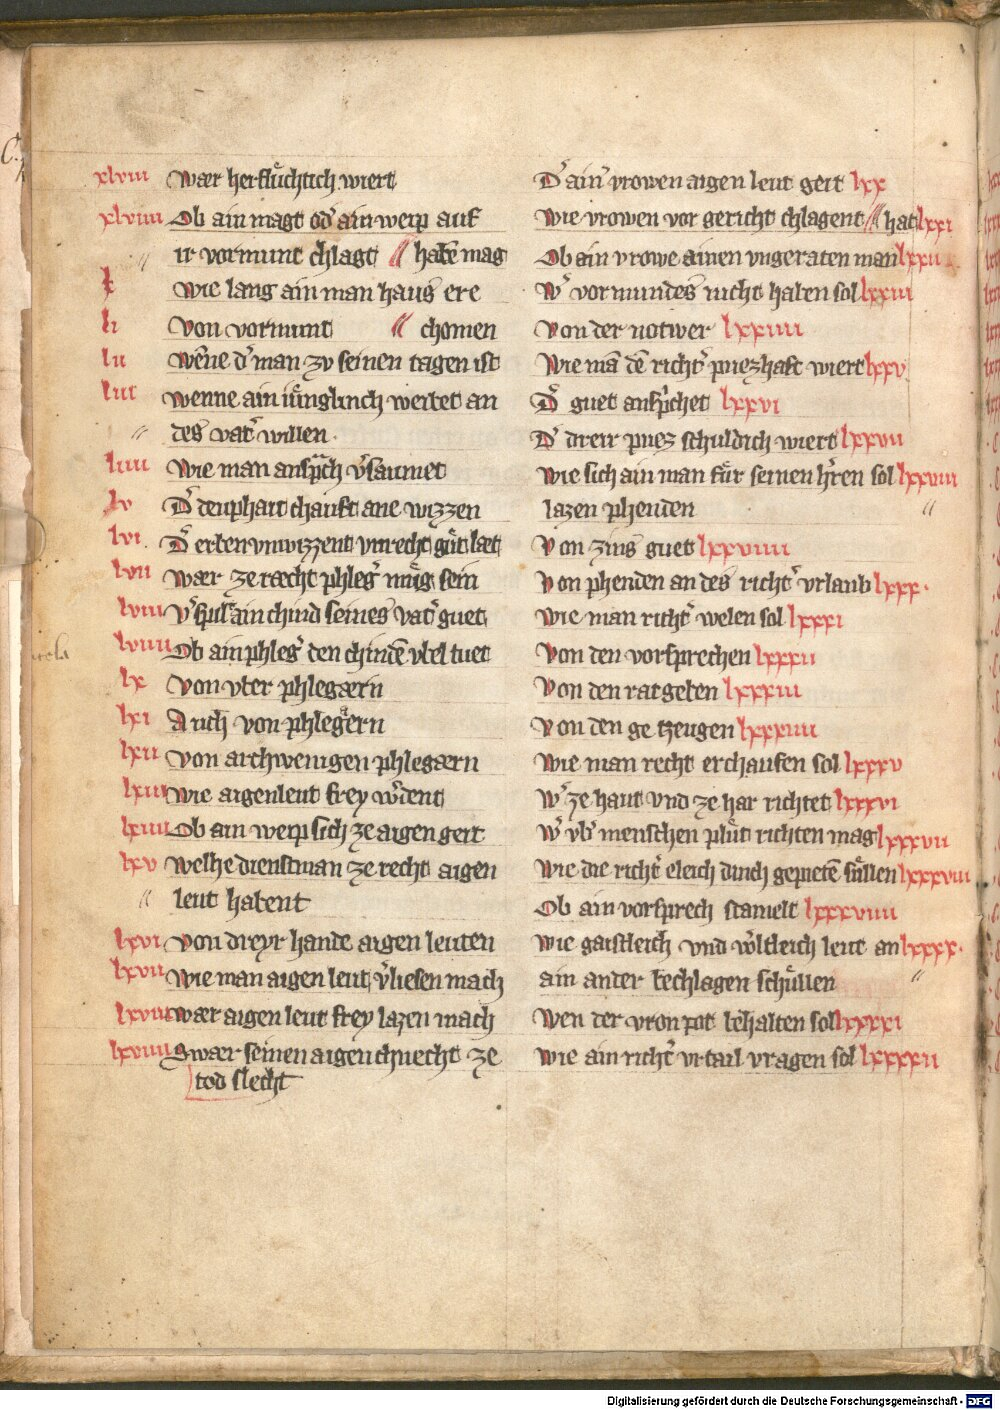 xlviii wær herfluͤchtich wiert
xlviiii Ob ain magt od̛ ain weip auf
〃 ir vormunt chlagt 〃 habē mag
l wie lang ain man haus ere
li von vormunt 〃 chomen
lii wēne d̛ man zv seinen tagen ist
liii wenne ain iuͤnglinch weibet an
〃 des vat̛ willen.
liiii wie man anspͣch v̛saumet
lv D̛ deuphait chauft ane wizzen
lvi D̛ erben vnwizzent vnrecht guͤt læt
lvii wær ze ræcht phleg̛ muͤg sein
lviii V̛spilt ain chind seines vat̛ guet
lviiii Ob ain phleg̛ den chindē vbel tuet
lx von vber phlegærn
lxi Auch von phlegærn
lxii von archwenigen phlegærn
lxiii wie aigenleut frey w̛dent
lxiiii Ob ain weip sich ze aigen geit
lxv welhe dienstman ze recht aigen
〃 leut habent
lxvi von dreyr hande aigen leuten
lxvii wie man aigen leut v̛liesen mach
lxviii wær aigen leut frey lazen mach
lxviiii Swær seinen aigen chnecht ze
tod slecht
D̛ ain̛ vrowen aigen leut geit lxx
wie vrowen vor gericht chlagent 〃 hat lxxi
Ob ain vrowe ainen vngeraten man lxxii
W̛ vormundes nicht haben sol lxxiii
Von der notwer lxxiiii
wie mā dē richt̛ puezhaft wiert lxxv
D̛ guet ansp̛chet lxxvi
D̛ dreir puez schuldich wiert lxxvii
wie sich ain man fuͤr seinen h̛ren sol lxxviii
lazen phenden 〃
Von zins guet lxxviiii
Von phenden an des richt̛ vrlaub lxxx.
wie man richt̛ welen sol lxxxi
Von den vorsprechen lxxxii
Von den ratgeben lxxxiii
Von den ge tzeugen lxxxiiii
wie man recht erchaufen sol lxxxv
W̛ ze haut vnd ze har richtet lxxxvi
W̛ vb̛ menschen pluͤt richten mag lxxxvii
wie die richt̛ eleich dinch gepietē suͤllen lxxxviii
Ob ain vorsprech stamelt lxxxviiii
wie gaistleich vnd w̛ltleich leut an lxxxx.
ain ander bechlagen schuͤllen 〃
Wen der vron pot behalten sol lxxxxi
wie ain richt̛ vrtail vragen sol lxxxxii
Digitalisierung gefördert durch die Deutsche Forschungsgemeinschaft - DFG